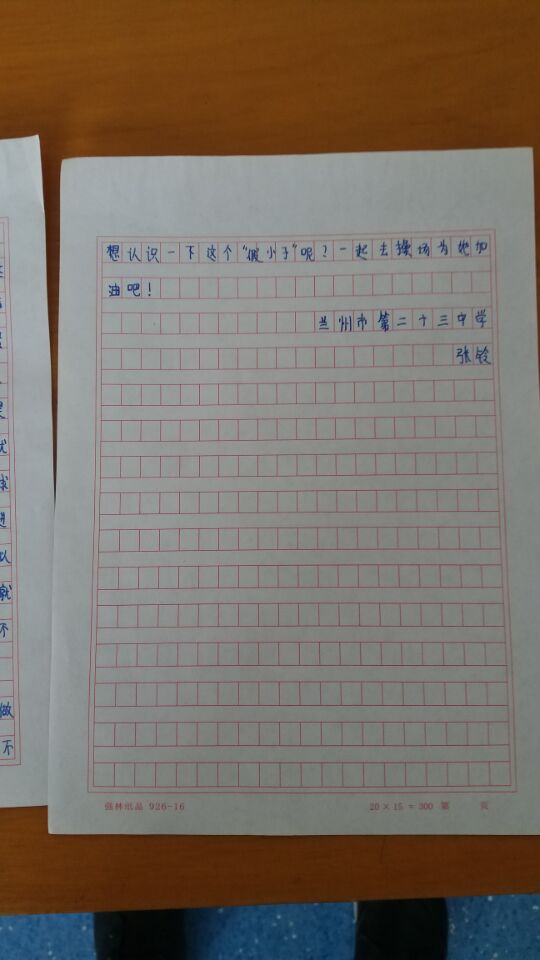 想认识一下这个“假小子”呢？一起去操场为她加
油吧！
兰州市第二十三中学
张铃
强林纸品 926-16
20×15=300 第 页
就
球
进
以
就
不
做
不